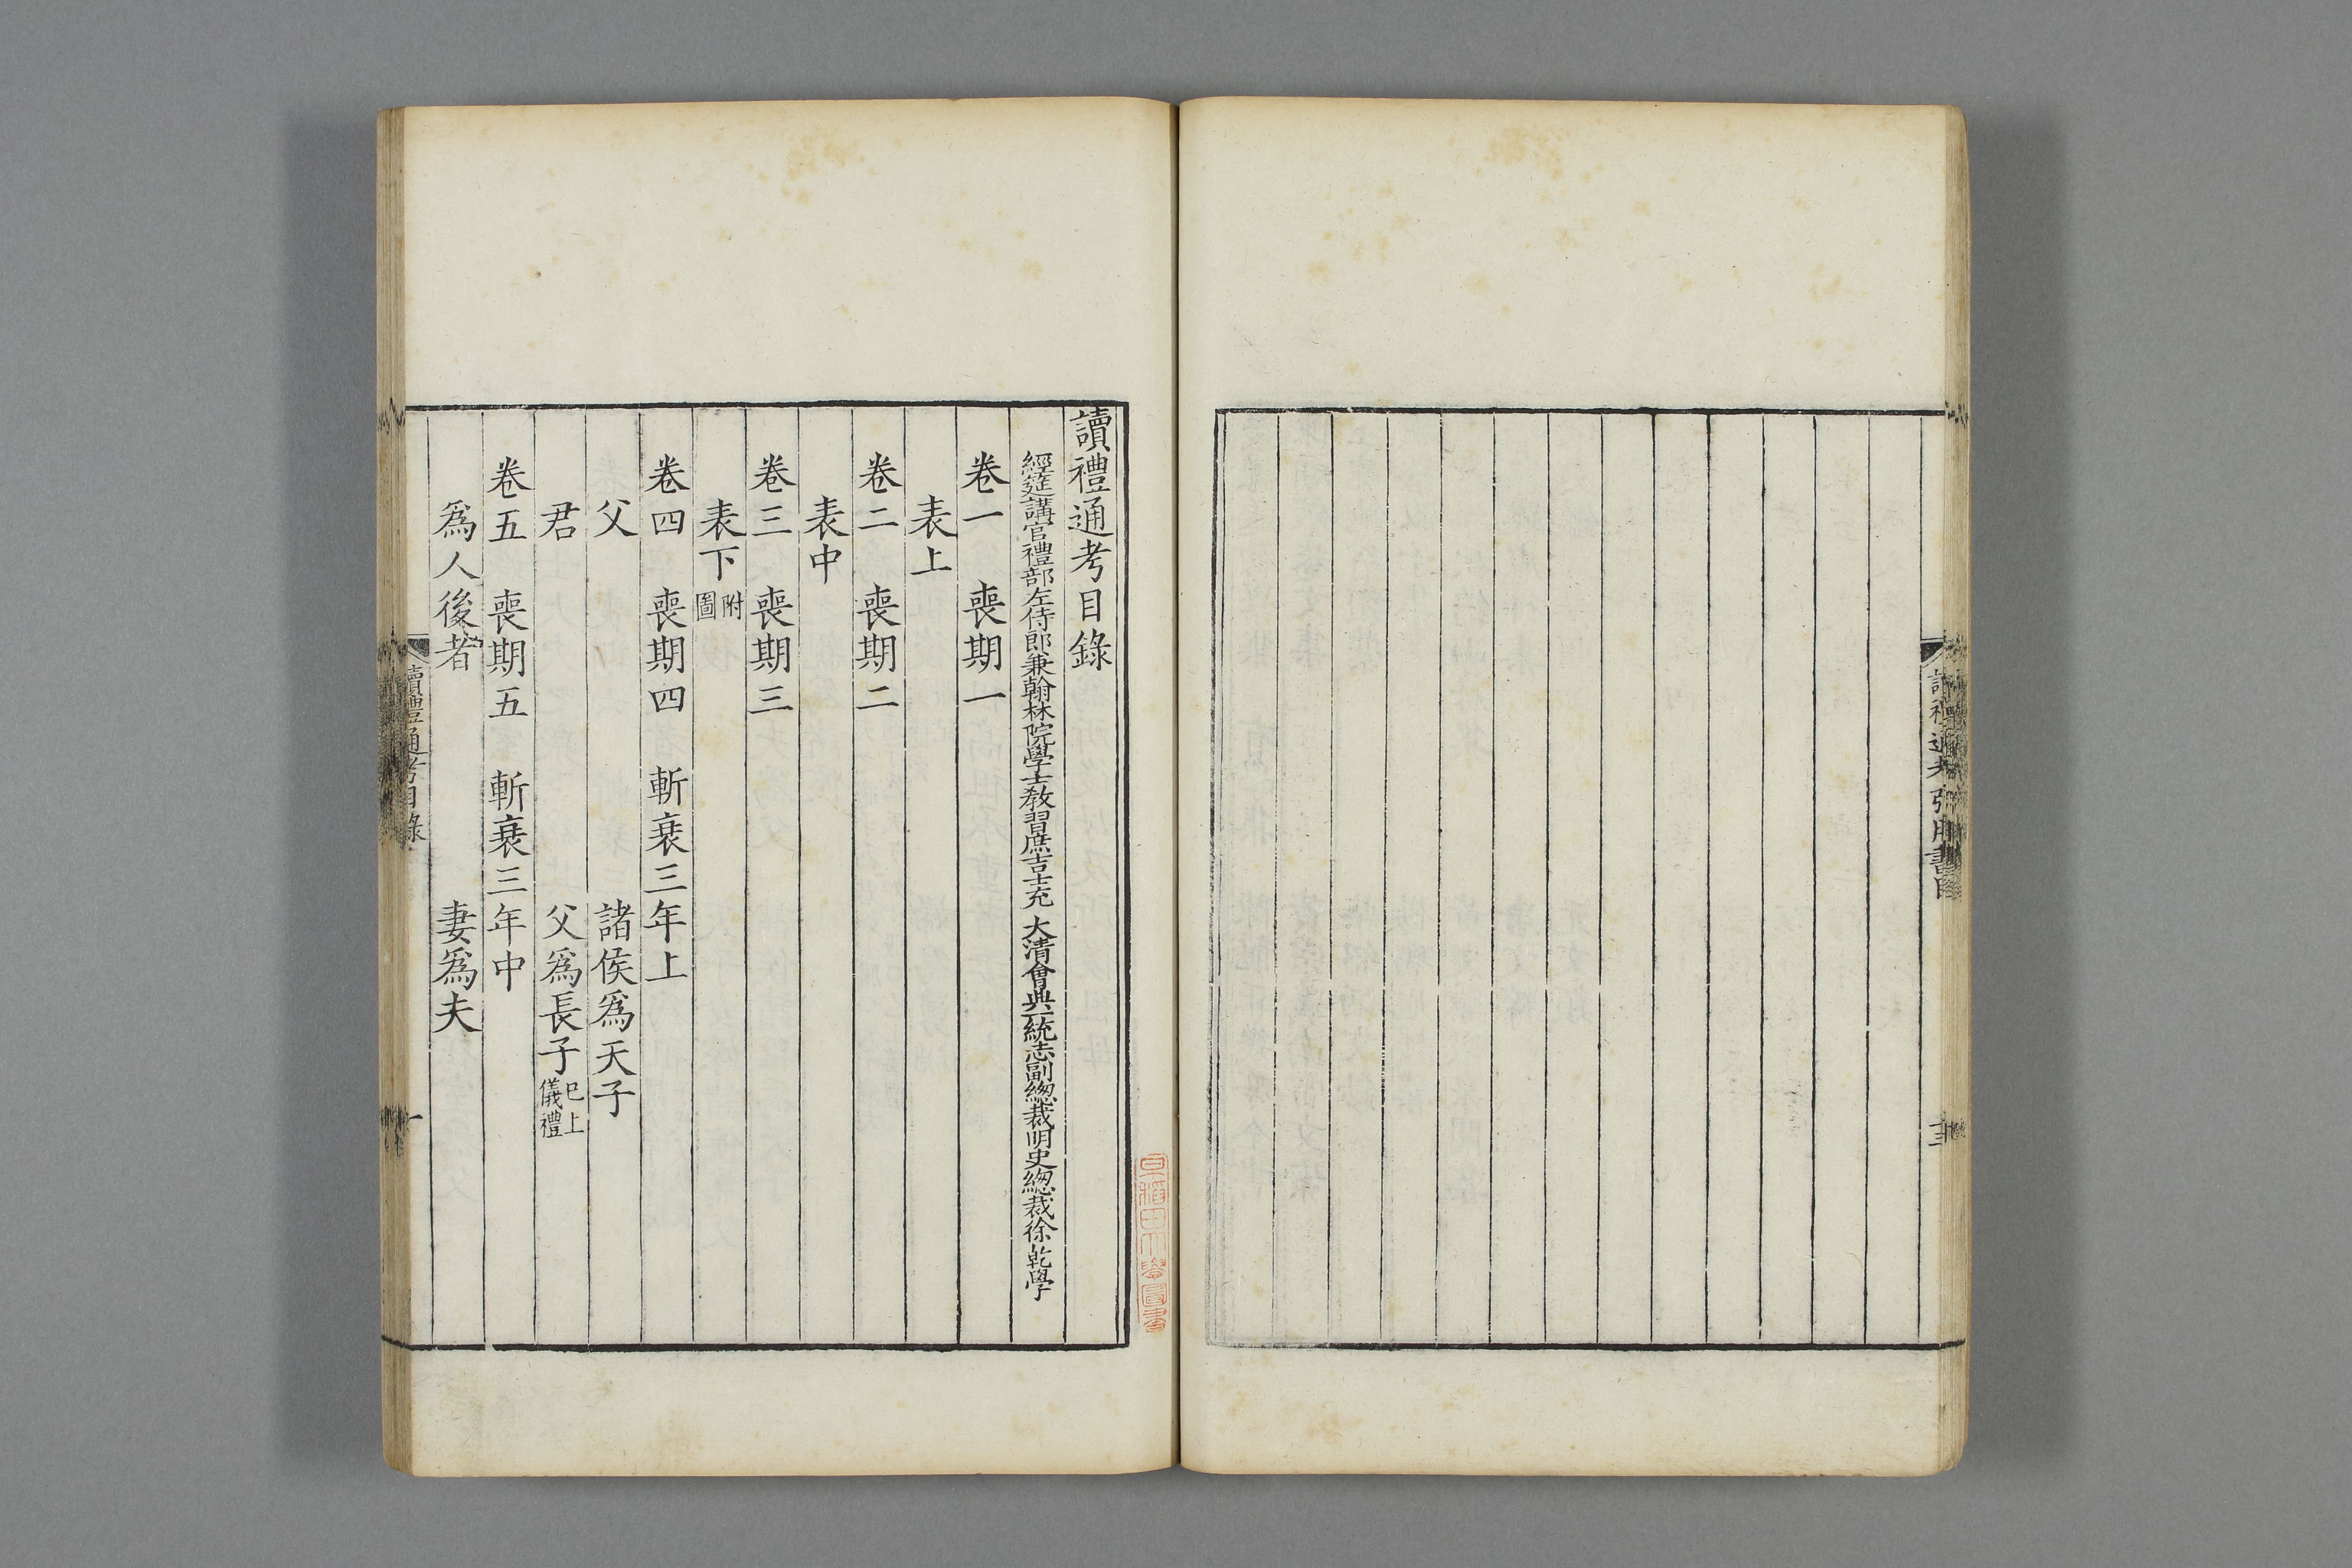 讀禮通考引用書目
十三
讀禮通考目錄
經筵講官禮部左侍郎兼翰林院學士敎習庶吉士充 大清會典一統志副總裁明史總裁徐乾學
卷一 喪期一
表上
卷二 喪期二
表中
卷三 喪期三
表下 附圖
卷四 喪期四 斬衰三年上
父 諸侯爲天子
君 父爲長子 已上儀禮
卷五 喪期五 斬衰三年中
爲人後者 妻爲夫
讀禮通考目錄
一
早稲田大學圖書